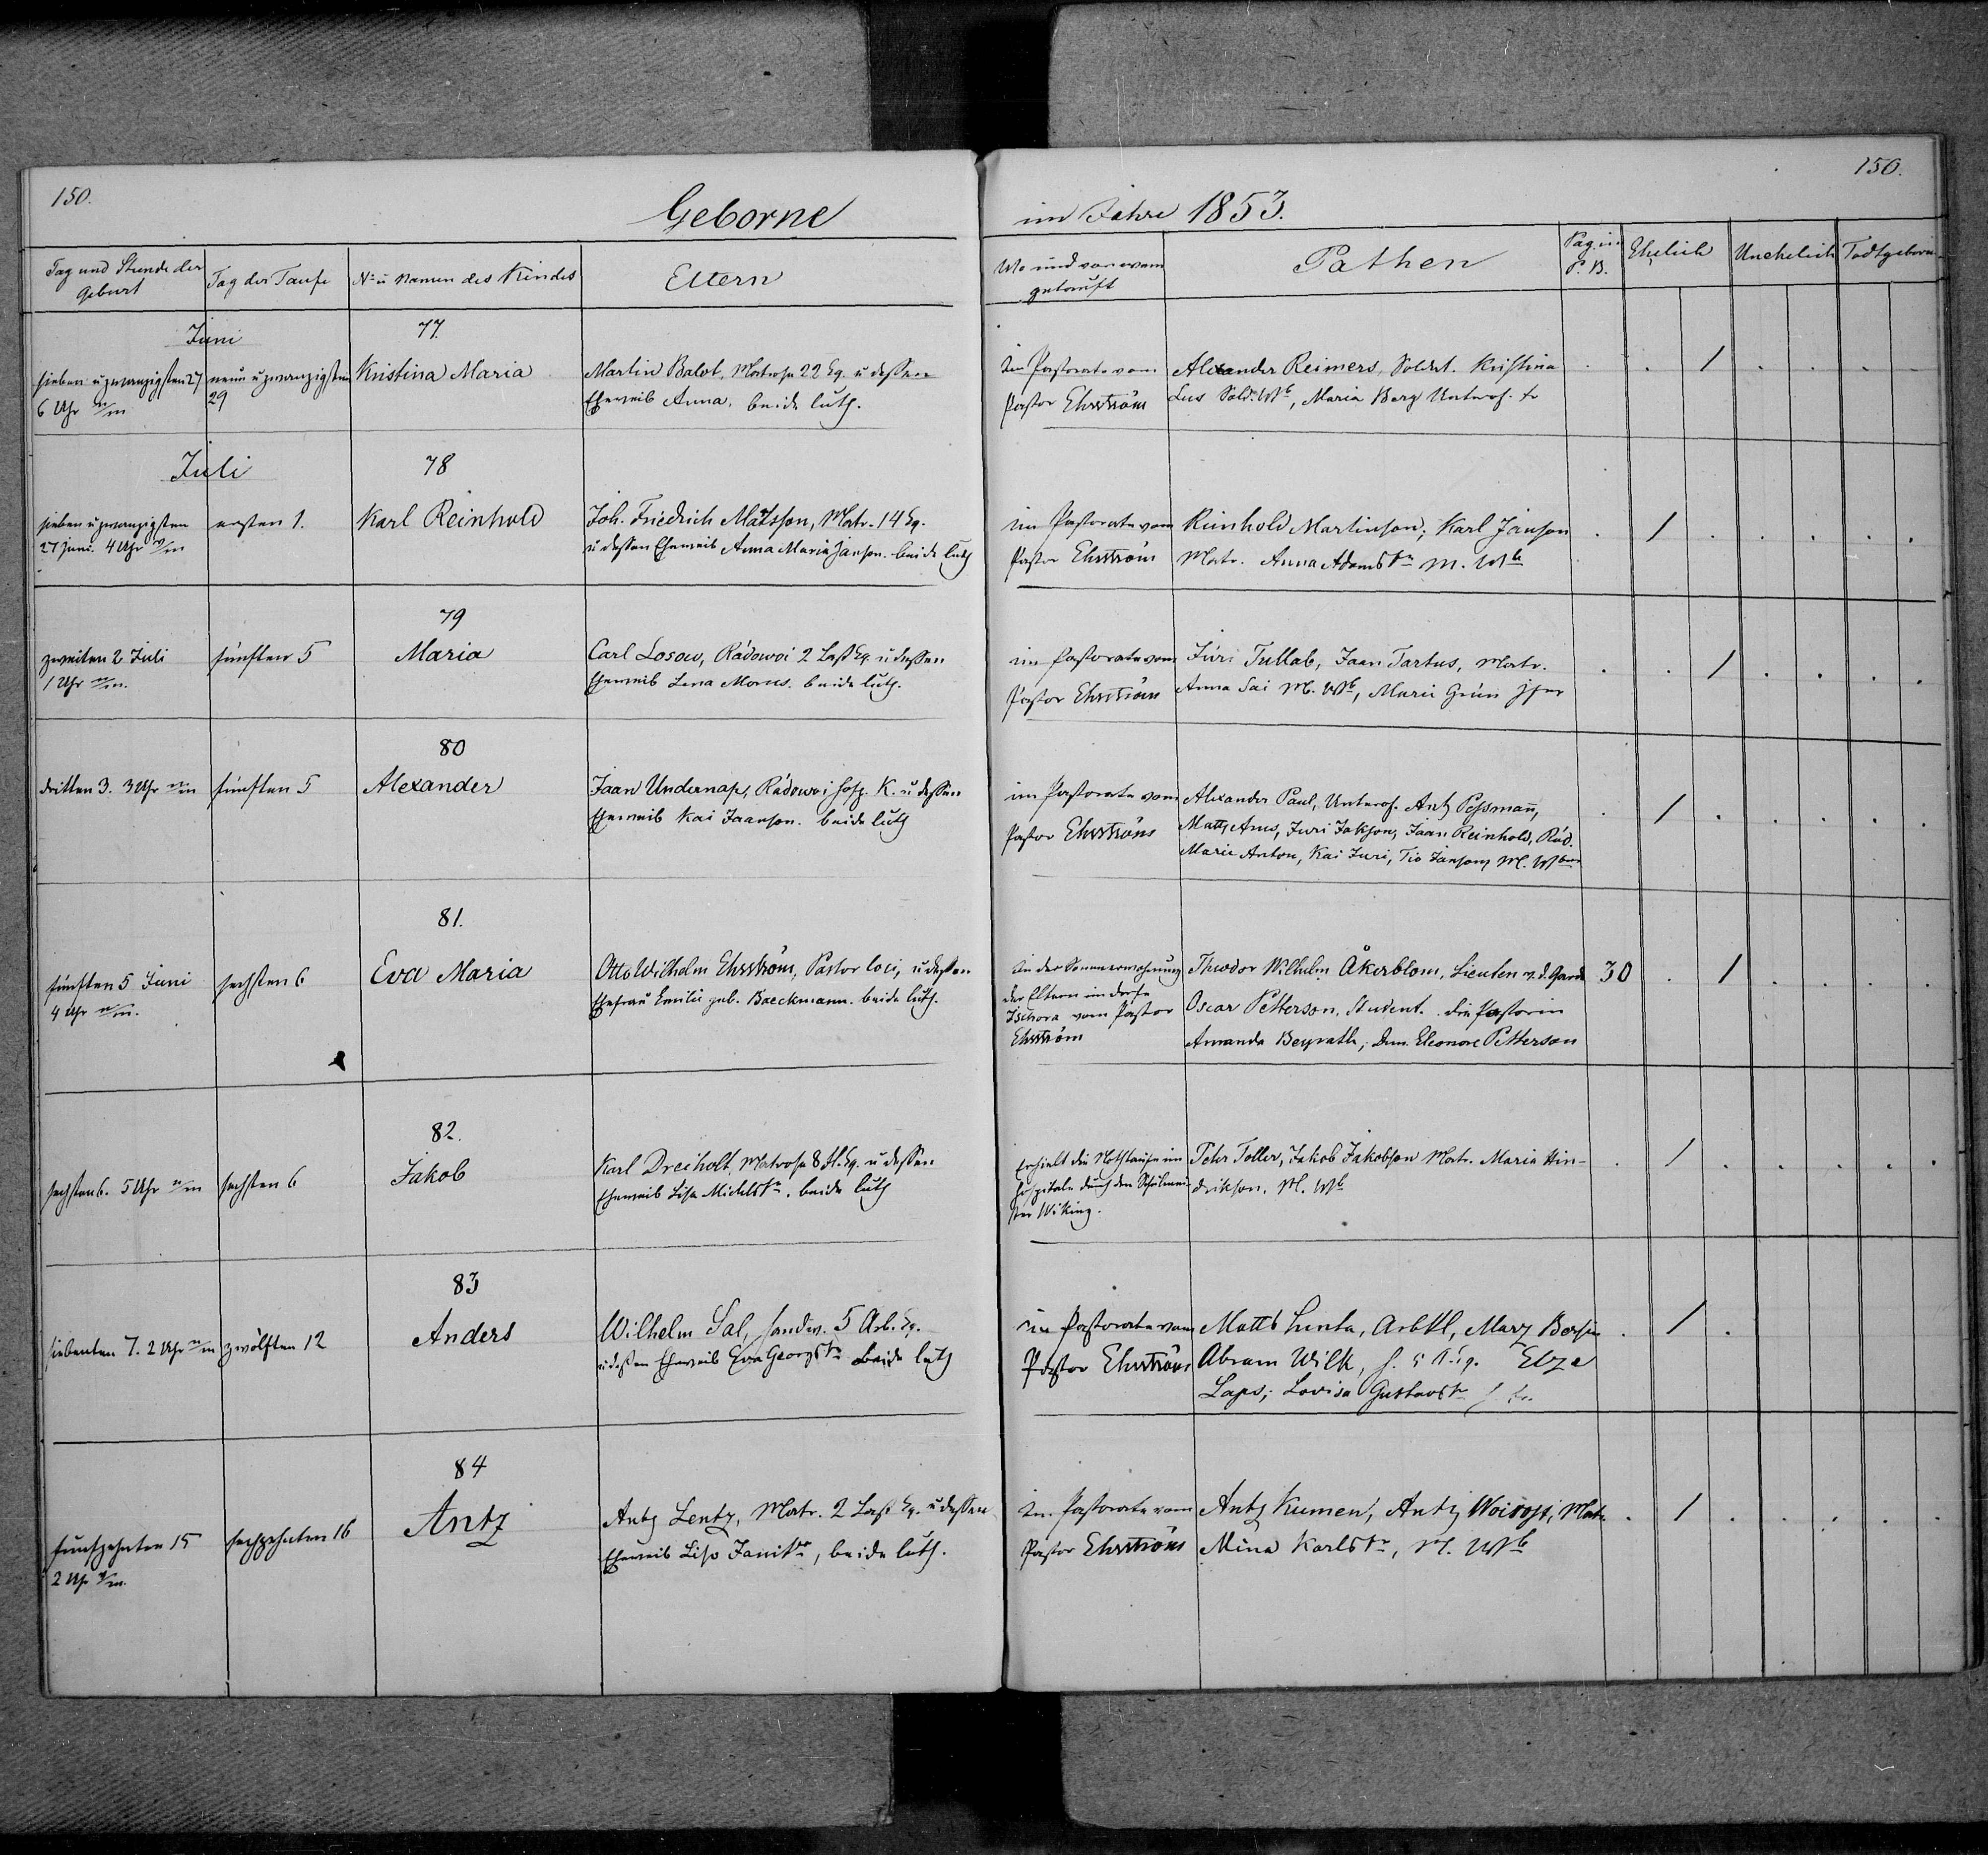 150.
Geborne
Tag und Stunde der Geburt
Tag der Taufe
N. u Namen des Kindes
Eltern
Juni
77.
sieben u zwanzigsten 27
6 Uhr n/m
neun u zwanzigsten
29
Kristina Maria
Martin Balot, Matrose 22 Eq. u dessen
Eheweib Anna. beide luth.
Juli
78
sieben u zwanzigsten
27 juni. 4 Uhr
ersten 1.
Karl Reinhold
Joh. Friedrich Matsson, Matr. 14 Eq.
u dessen Eheweib Anna Maria Janson. beide luth
79
zweiten 2 Juli
1 Uhr n/m.
fünften 5
Maria
Carl Losow, Rádowoi 2 Last Eq. u dessen
Eheweib Lena beide luth.
80
dritten 3. 3 Uhr n/m
fünften 5
Alexander
Jaan Undernap, Rádowoi K. u dessen
Eheweib Kai Jaanson. beide luth
81.
fünften 5 Juni
4 Uhr n/m.
sechsten 6
Eva Maria
Otto Wilhelm Ehrström, Pastor loci, u dessen
Ehefrau Emilie geb. Baeckmann. beide luth.
82.
sechsten 6. 5 Uhr n/m
sechsten 6
Jakob
Karl Dreiholt, Matrose 8 fl. Eq. u dessen
Eheweib Lisa Michelstr. beide luth
83
siebenten 7. 2 Uhr n/m
zwölften 12
Anders
Wilhelm Sal, Handw. 5 Arb. Eq.
u dessen Eheweib Eva Georgstr beide luth
84
fünfzehnten 15
2 Uhr
sechzehnten 16
Antz
Antz Lentz, Matr. 2 Last Eq. u dessen
Eheweib Liso , beide luth.
150.
im Jahre 1853.
Wo und von wem
getauft
Pathen
Pag. im
P. B.
Ehelich
Unehelich
Todtgeboren
Im Pastorate vom
Pastor Ehrström
Alexander Reimers, Soldat. Kristina
Lus Sold. Wb, Maria Berg Unterof. tr
im Pastorate vom
Pastor Ehrström
Reinhold Martinson, Karl Janson
Matr. Anna Adamstr M. Wb
im Pastorate vom
Pastor Ehrström
Jüri Tullab, Jaan Tartus, Matr.
Anna Sai M. Wb, Marie Grün jfer
im Pastorate vom
Pastor Ehrström
Alexander Paul, Unterof. Antz Possmann,
Matts Arus, Juri Jakson, Jaan Reinhold, Rád.
Marie Anton, Kai Juri, Tio Janson, M. Wber
In der Sommerwohnung
der Eltern im Dorfe
Ischora vom Pastor
Ehrström
Theodor Wilhelm Åkerblom, Lieuten. v. d. Garde
Oscar Petterson, Student. die Pastorin
Amanda Beyrath, Dem. Eleonore Petterson
30
Erhielt die Nothtaufe im
Hospitale durch den Schulmei-
ster Wiking.
Peter Toller, Jakob Jakobson Matr. Maria Hin-
drikson, M. Wb
im Pastorate vom
Pastor Ehrström
Matts Lunta, Arbtl, Marz
Abram Wilk, Elze
Laps, Lovisa Gustavstr
Im Pastorate vom
Pastor Ehrström
Antz Kumen, Antz Matr.
Mina Karlstr, M. Wb